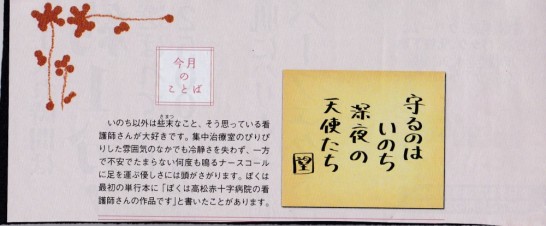 今月
の
ことば
いのち以外は些末なこと、そう思っている看
護師さんが大好きです。集中治療室のぴりぴ
りした雰囲気のなかでも冷静さを失わず、一方
で不安でたまらない何度も鳴るナースコール
に足を運ぶ優しさには頭がさがります。ぼくは
最初の単行本に「ぼくは高松赤十字病院の看
護師さんの作品です」と書いたことがあります。
守るのは
いのち
深夜の
天使たち
望